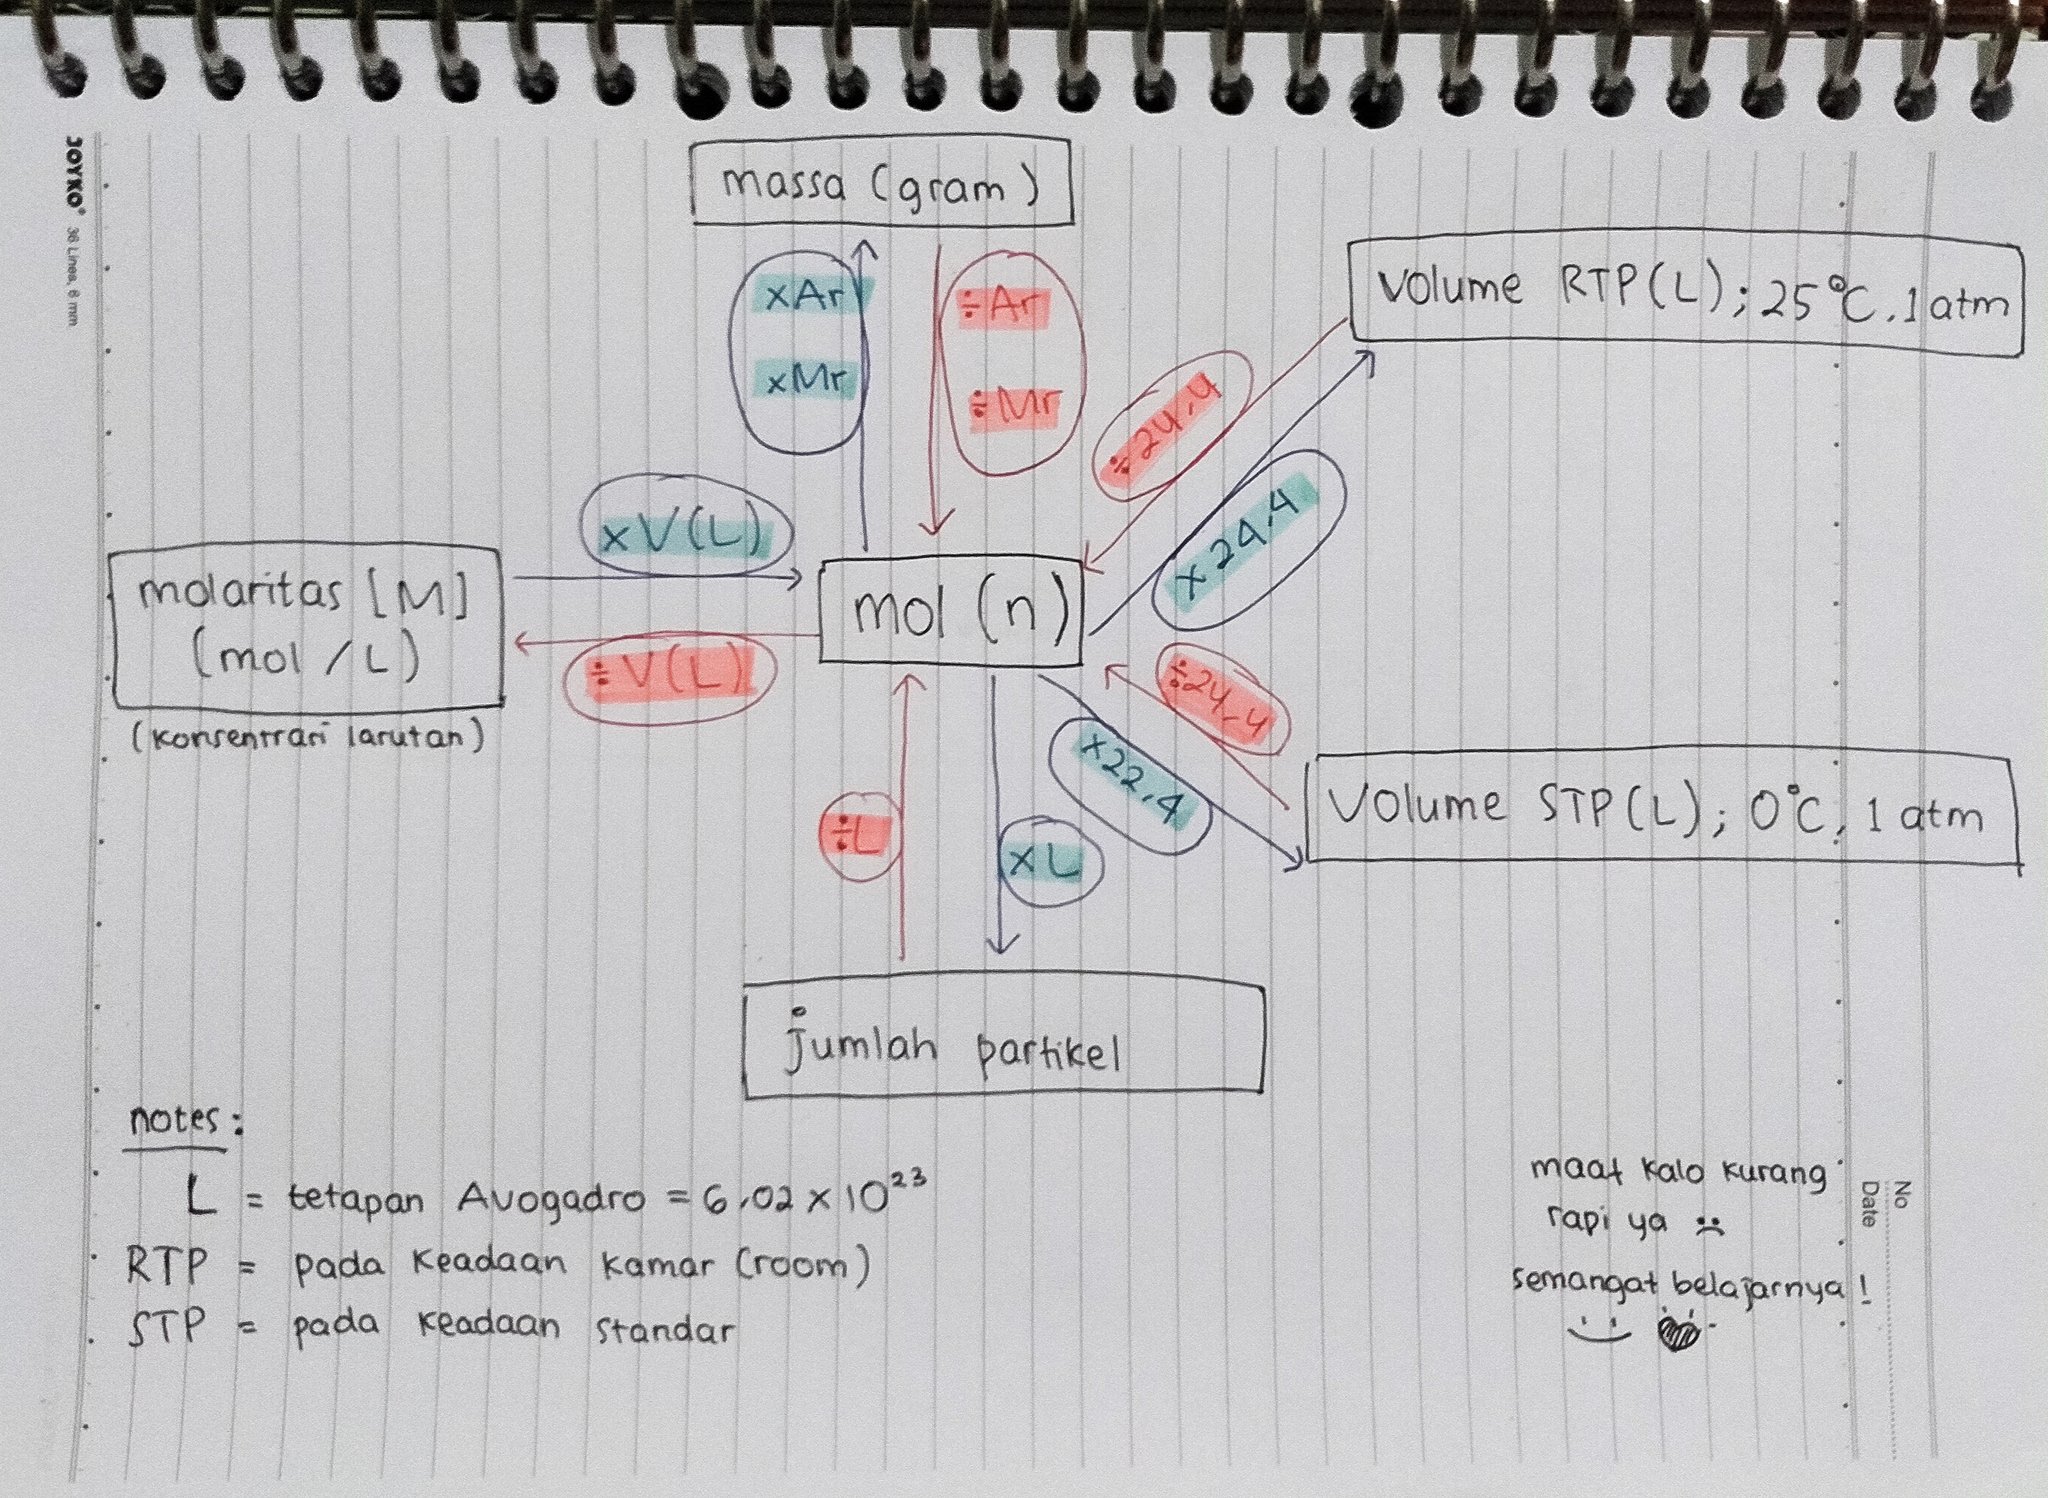 JOYKO® 36 Lines, 6 mm
massa (gram)
xAr
xMr
÷Ar
÷Mr
Volume RTP (L); 25°C, 1 atm
÷24,4
x24,4
xV(L)
molaritas [M]
(mol/L)
(konsentrasi larutan)
÷V(L)
mol (n)
÷24,4
x22,4
Volume STP (L); 0°C, 1 atm
÷L
xL
jumlah partikel
notes:
L = tetapan Avogadro = 6,02 x 10²³
RTP = pada keadaan kamar (room)
STP = pada keadaan standar
maaf kalo kurang
rapi ya :(
semangat belajarnya!
No
Date